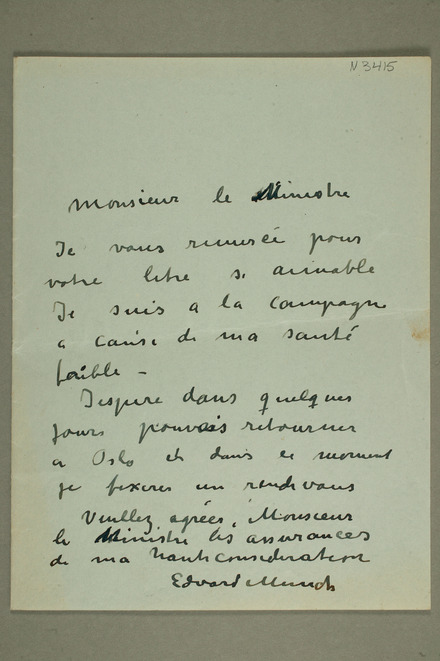 N 3415
Monsieur le Ministre
Je vous remercé pour
votre letre si aimable
Je suis a la campagne
a cause de ma santé
faible –
Jespere dans quelques
jours pouvois retourner
a Oslo et dans ce moment
je fixeres un rendevous
Veullez agrées, Monsieur
le Ministre les assurances
de ma haute consideration
Edvard Munch